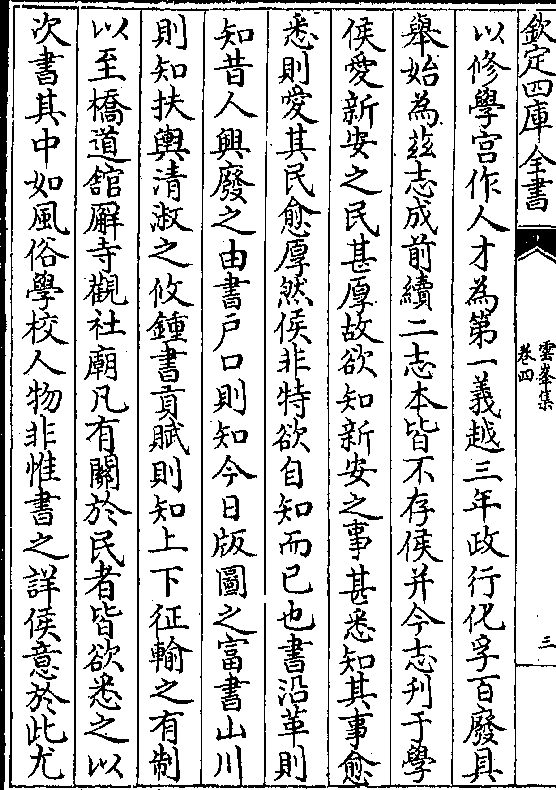 欽定四庫全書
雲峯集
卷四
三
以修學宫作人才為第一義越三年政行化孚百廢具
舉始為茲志成前續二志本皆不存侯并今志刋于學
侯愛新安之民甚厚故欲知新安之事甚悉知其事愈
悉則愛其民愈厚然侯非特欲自知而已也書沿革則
知昔人興廢之由書戸口則知今日版圖之富書山川
則知扶輿清淑之攸鍾書貢賦則知上下征輸之有制
以至橋道舘廨寺觀社廟凡有闗於民者皆欲悉之以
次書其中如風俗學校人物非惟書之詳侯意於此尤